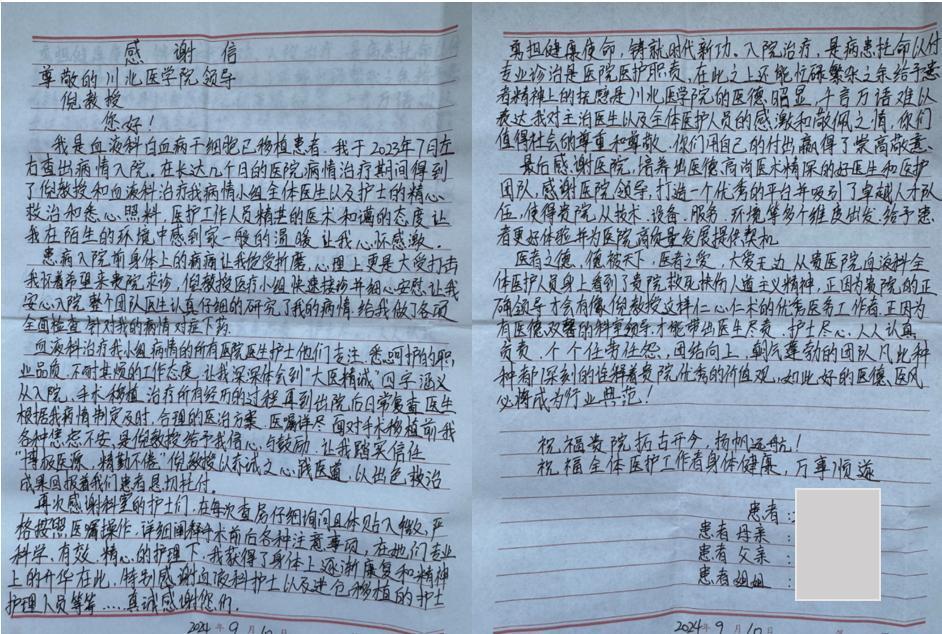 感谢信
尊敬的川北医学院领导
倪教授
您好！
我是血液科白血病干细胞已移植患者，我于2023年7日左
右查出病情入院。在长达几个日的医院病情治疗期间得到
了倪教授和血液科治疗我病情小组全体医生以及护士的精心
救治和悉心照料，医护工作人员精湛的医术和谒的态度让
我在陌生的环境中感到家一般的温暖让我心怀感激。
患病入院前身体上的病痛让我饱受折磨，心理上更是大受打击
我怀着希望来贵院求诊，倪教授医疗小组快速接诊并细心安慰，让我
安心入院，整个团队医生认真仔细的研究了我的病情，给我做了各项
全面检查，针对我的病情对症下药。
血液科治疗我小组病情的所有医院医生护士他们专注、悉心呵护的职
业品质，不耐其烦的工作态度，让我深深体会到“大医精诚”四字涵义
从入院、手术移植、治疗所有经历的过程再到出院后日常复查，医生
根据我病情制定及时、合理的医治方案，医嘱详尽，面对手术移植前我
各种焦虑不安，是倪教授给予我信心与鼓励，让我踏实信任
“博极医源，精勤不倦”倪教授以赤诚之心，践医道，以出色救治
成果回报着我们患者恳切托付。
再次感谢科室的护士们，在每次查房仔细询问且体贴入微，严
格按照医嘱操作，详细阐释手术前后各种注意事项，在她们专业
科学、有效、精心的护理下，我获得了身体上逐渐康复和精神
上的升华在此，特别感谢血液科护士以及进仓移植的护士
护理人员等等……真诚感谢您们。
2024年9月10日
肩担健康使命，铸就时代新功。入院治疗，是病患托命以付
专业诊治是医院医护职责，在此之上还能忙碌繁杂之余给予患
者精神上的抚慰是川北医学院的医德昭显，千言万语难以
表达我对主治医生以及全体医护人员的感激和敬佩之情，你们
值得社会的尊重和尊敬。你们用自己的付出赢得了崇高敬意。
最后感谢医院，培养出医德高尚医术精深的好医生和医护
团队，感谢医院领导，打造一个优秀的平台并吸引了卓越人才队
伍，使得贵院从技术、设备、服务、环境等多个维度出发，给予患
者更好体验并为医院高质量发展提供契机。
医者之德，德被天下，医者之爱，大爱无边，从贵医院血液科全
体医护人员身上看到了贵院救死扶伤人道主义精神，正因为贵院的正
确领导才会有像倪教授这样仁心仁术的优秀医务工作者，正因为
有医德双馨的科室领导，才能带出医生尽责，护士尽心，人人认真
负责，个个任劳任怨，团结向上，朝气蓬勃的团队，凡此种
种都深刻的诠释着贵院优秀的价值观，如此好的医德、医风
必将成为行业典范！
祝福贵院拓古开今，扬帆远航！
祝福全体医护工作者身体健康，万事顺遂
患者：
患者母亲：
患者父亲：
患者姐姐：
2024年9月10日